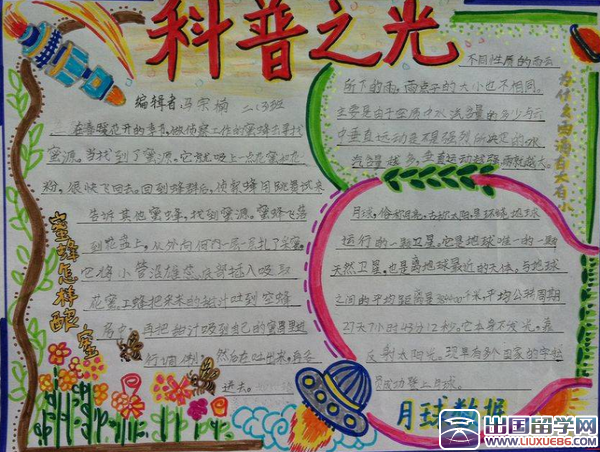 科普之光
编辑者 马宗楠 二.(3)班
蜜蜂怎样酿蜜
在春暖花开的季节,做侦察工作的蜜蜂去寻找
蜜源。当找到了蜜源,它就吸上一点花蜜和花
粉,很快飞回去。回到蜂群后,侦察蜂用跳舞试来
告诉其他蜜蜂,找到蜜源。蜜蜂飞落
到花盘上,从外向
它将小管
花蜜。
房中,再把 汁吸到自己的蜜胃里进
行调制,然后在吐出来,
进去。
为什么雨滴有大有小
不同性质的雨云
所下的雨,雨点子的大小也不相同。
主要是由于空气中水汽含量的多少与云
中垂直运动是不是强烈所决定的。水
汽含量越多,垂直运动越强,雨就越大。
月球,俗称月亮,古称太阴,是环绕地球
运行的一颗卫星。它是地球唯一的一颗
天然卫星,也是离地球最近的天体。与地球
之间的平均距离是384400千米,平均公转周期
27天7小时43分12秒。它本身不发光,靠
反射太阳光。现早有多个国家的宇航
员成功登上月球。
月球数据
出国留学网
www.liuxue86.com